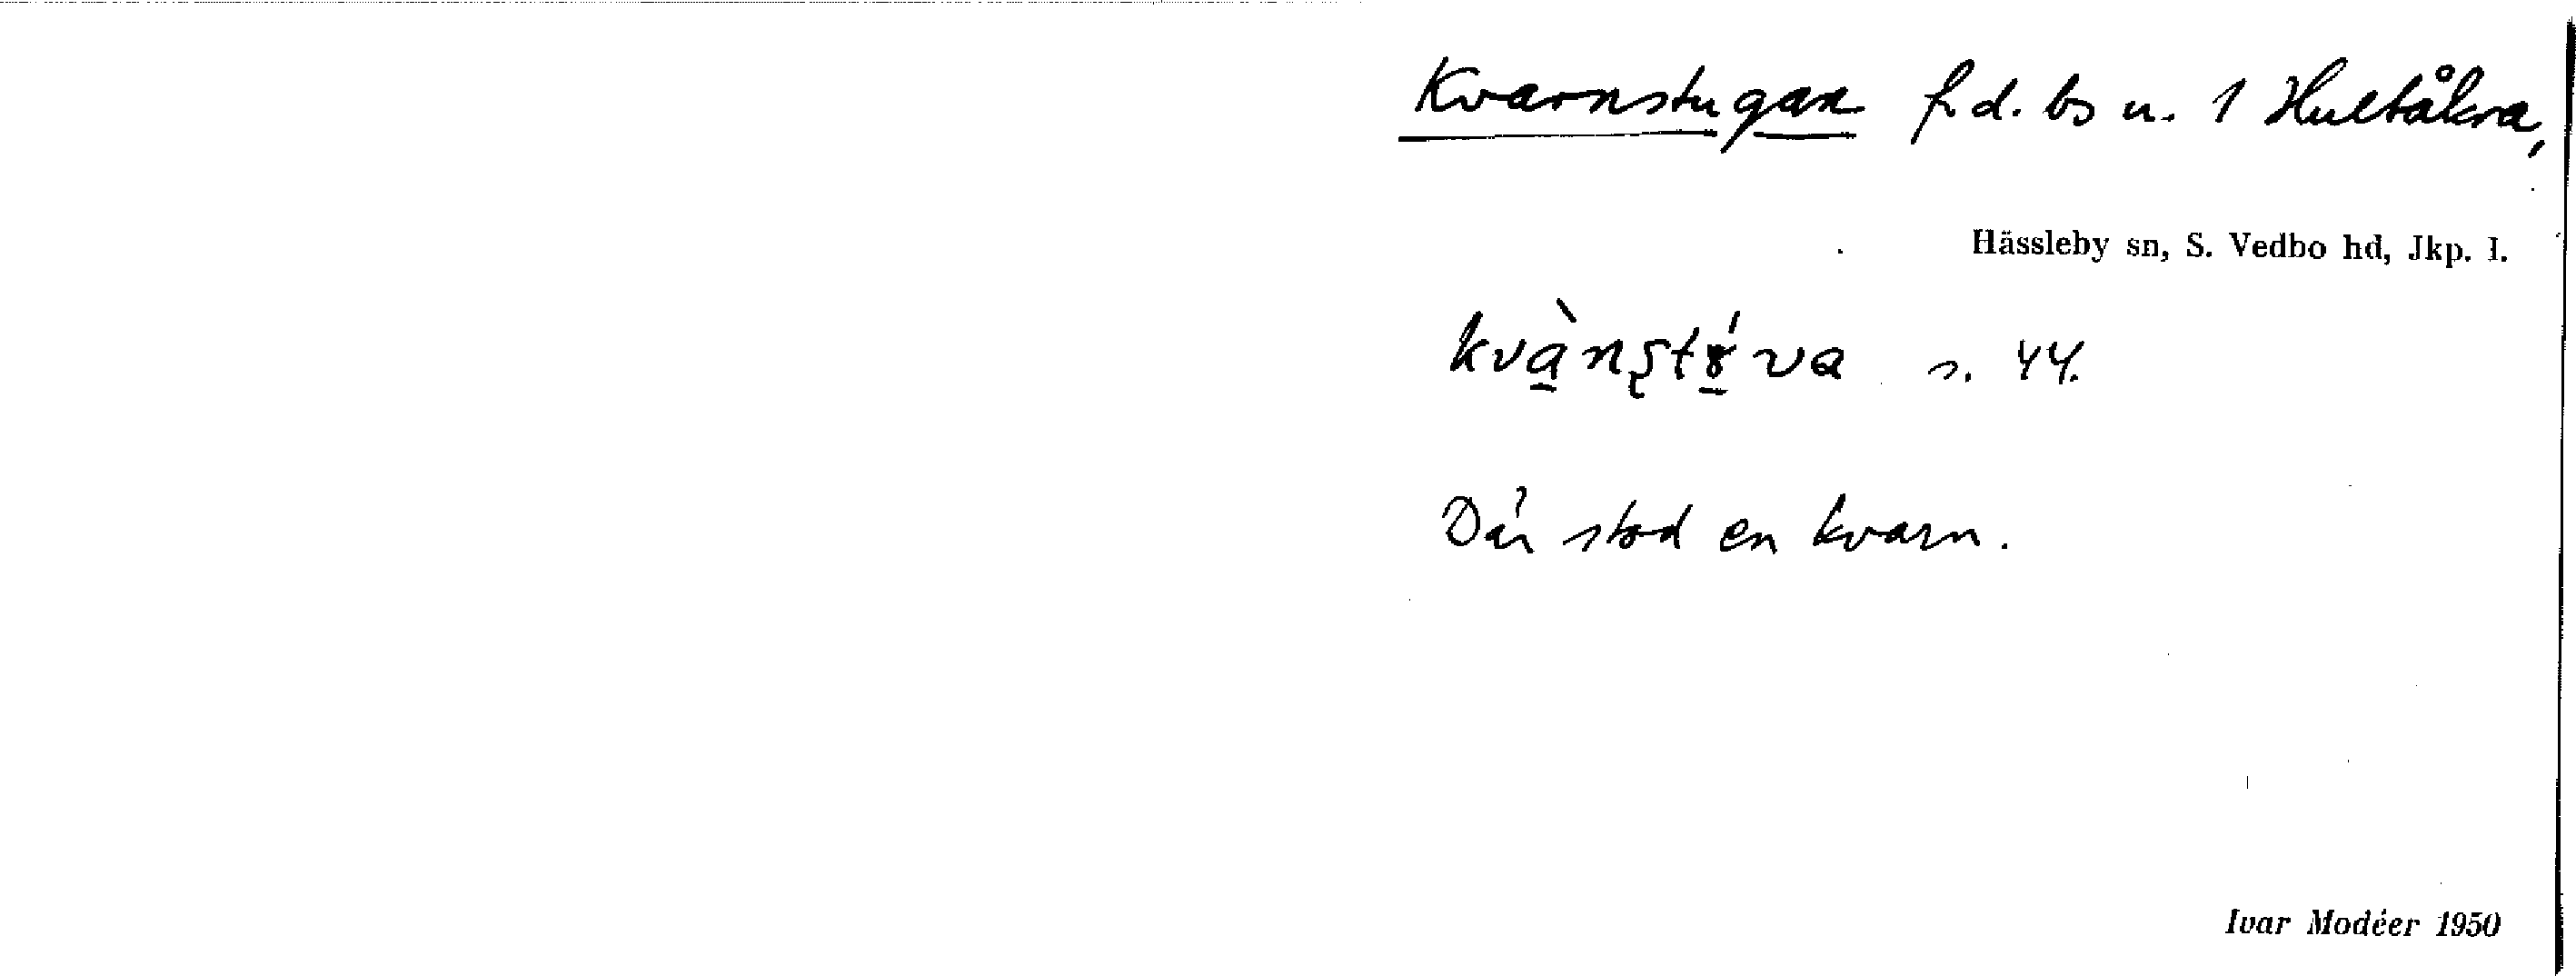 Kvarnstugan f. d. bs u. 1 Hultåkra,
Hässleby sn, S. Vedbo hd, Jkp. l.
s. 44.
Där stod en kvarn.
Ivar Modéer 1950